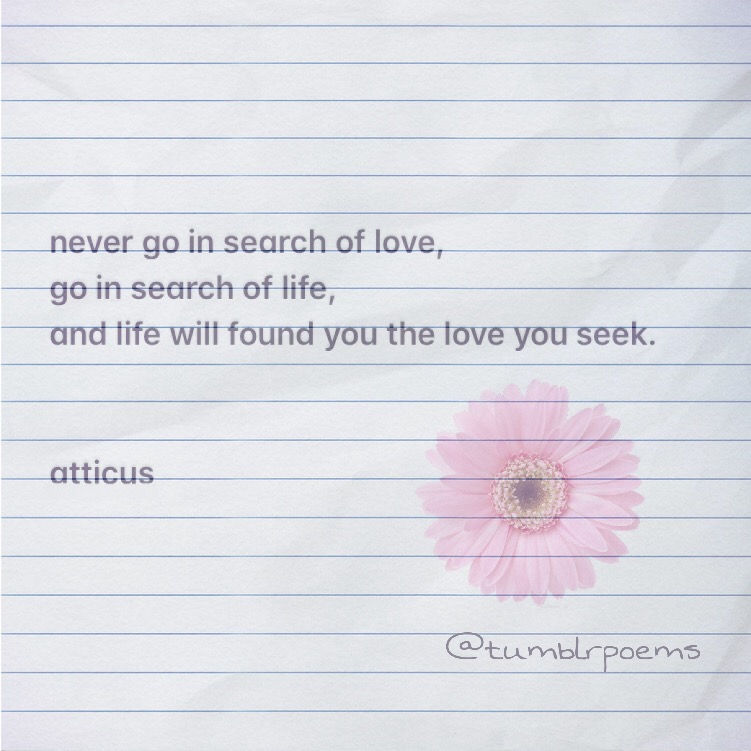 never go in search of love,
go in search of life,
and life will found you the love you seek.
atticus
@tumblrpoems